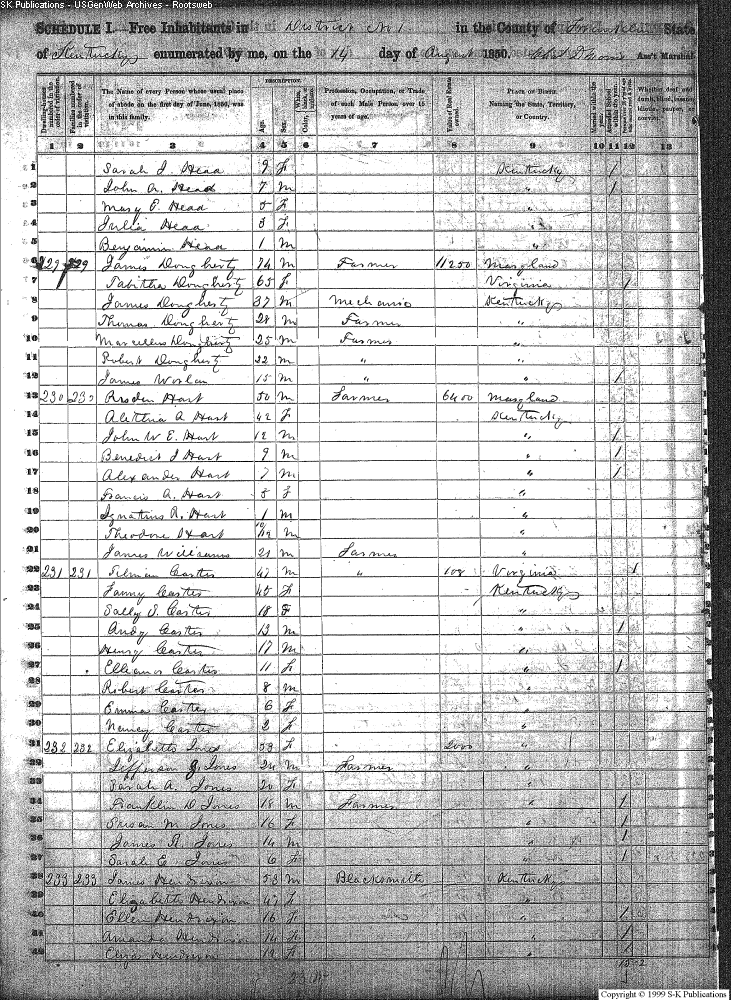 SK Publications - USGenWeb Archives - Rootsweb
SCHEDULE I. Free Inhabitants in District No 1 in the County of Franklin State
of Kentucky enumerated by me, on the 14 day of August 1850. Ass't Marshal.
DESCRIPTION.
Dwelling-houses numbered in the order of visitation. Families numbered in the order of visitation. The Name of every Person whose usual place of abode on the first day of June, 1850, was in this family. Age. Sex. Color, White, black, or mulatto. Profession, Occupation, or Trade of each Male Person over 15 years of age. Value of Real Estate owned. Place of Birth. Naming the State, Territory, or Country. Married within the year. Attended School within the year. Whether deaf and dumb, blind, insane, idiotic, pauper, or convict.
1 2 3 4 5 6 7 8 9 10 11 12 13
1 Sarah J. Head 9 F Kentucky /
2 John A. Head 7 M " /
3 Mary E. Head 5 F "
4 Julia Head 3 F "
5 Benjamin Head 1 M "
6 229 229 James Dougherty 74 M Farmer 11250 Maryland
7 Tabitha Dougherty 65 F Virginia /
8 James Dougherty 37 M Mechanic Kentucky
9 Thomas Dougherty 28 M Farmer "
10 Marcellus Dougherty 25 M Farmer "
11 Robert Dougherty 22 M " "
12 James 15 M " " /
13 230 230 Hart 50 M Farmer 6400 Maryland
14 Alethia A Hart 42 F Kentucky
15 John W E. Hart 12 M " /
16 Benedict J Hart 9 M " /
17 Alexander Hart 7 M " /
18 Francis A. Hart 3 F "
19 Ignatius R. Hart 1 M "
20 Theodore Hart 10/12 M "
21 James Williams 21 M Farmer "
22 231 231 Tilman Carter 47 M " 100 Virginia /
23 Fanny Carter 45 F Kentucky
24 Sally S. Carter 18 F "
25 Andy Carter 13 M " /
26 Henry Carter 17 M "
27 Ellianor Carter 11 F " /
28 Robert Carter 8 M "
29 Emma Carter 6 F "
30 Nancy Carter 2 F "
31 232 232 Elizabeth Jones 53 F 2000 "
32 Jefferson G. Jones 24 M Farmer "
33 Sarah A. Jones 20 F "
34 Franklin D Jones 18 M Farmer " /
35 Susan M Jones 16 F " /
36 James R. Jones 14 M " /
37 Sarah E Jones 6 F " /
38 233 233 James Hendrixson 53 M Blacksmith Kentucky
39 Elizabeth Hendrixson 47 F "
40 Ellen Hendrixson 16 F " /
41 Amanda Hendrixson 14 F " /
42 Eliza Hendrixson 12 F " /
Copyright © 1999 S-K Publications